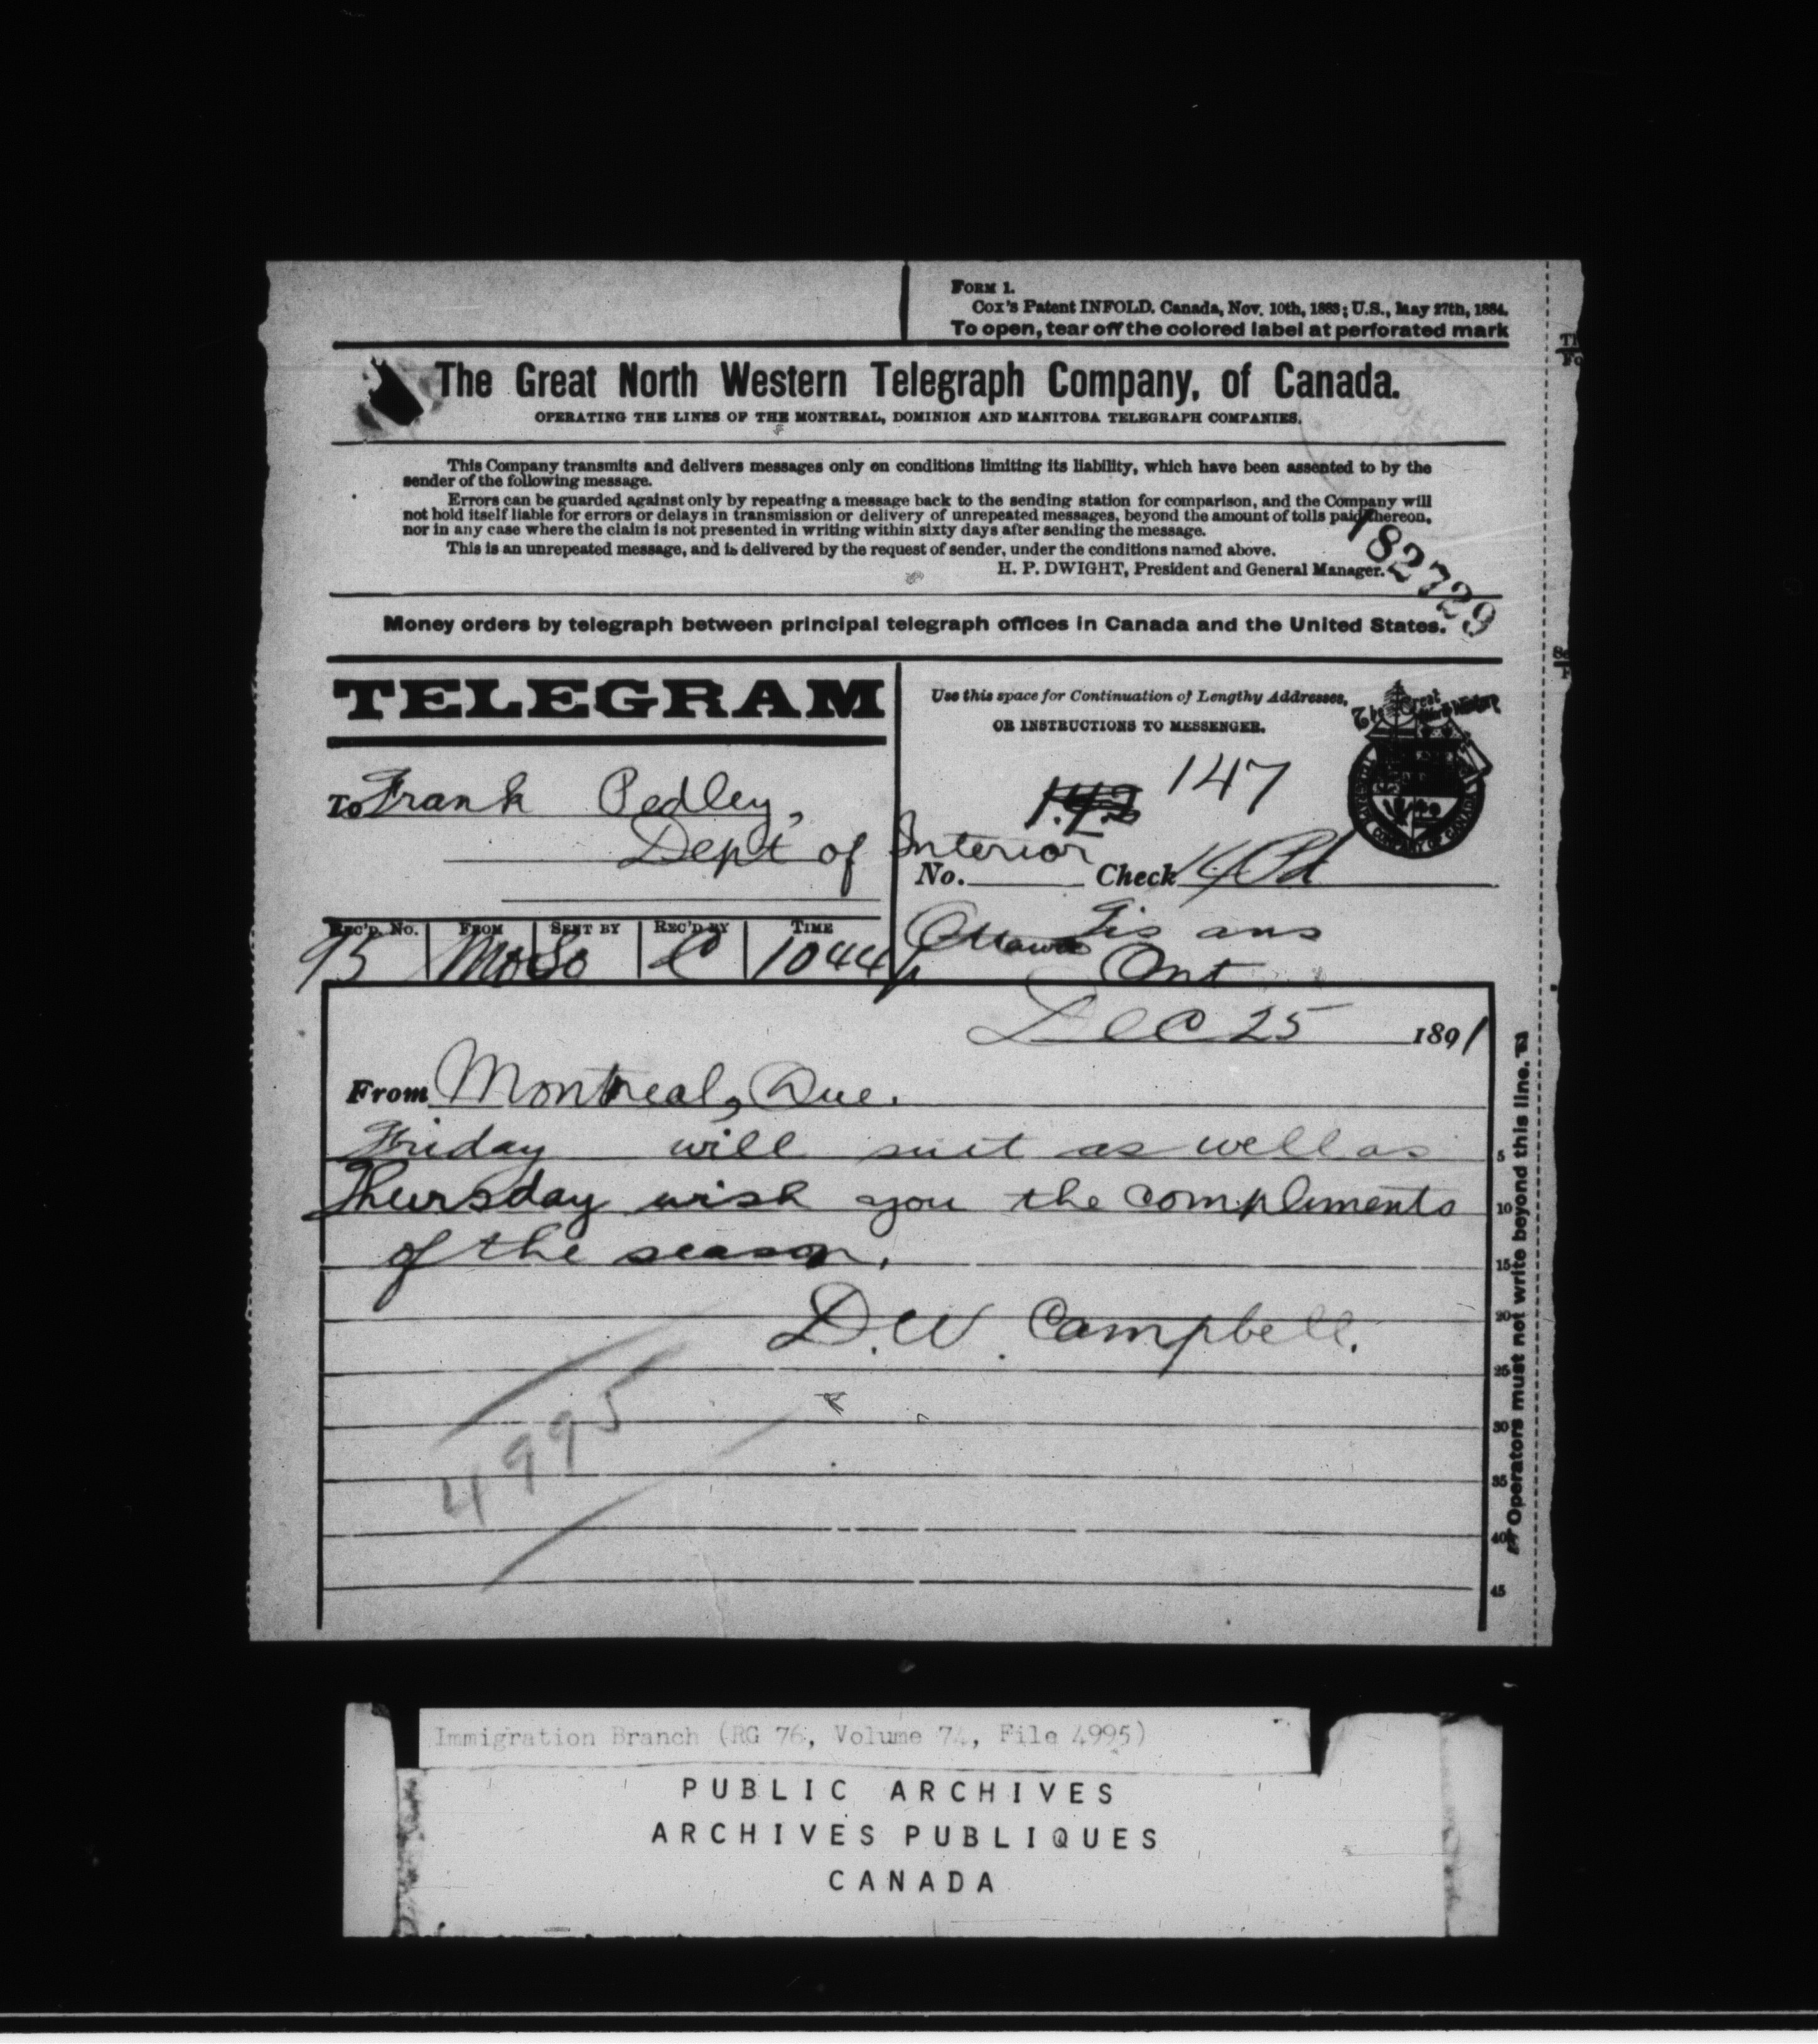 FORM 1.
Cox's Patent INFOLD. Canada, Nov. 10th, 1883; U.S., May 27th, 1884.
To open, tear off the colored label at perforated mark
The Great North Western Telegraph Company, of Canada.
OPERATING THE LINES OF THE MONTREAL, DOMINION AND MANITOBA TELEGRAPH COMPANIES.
This Company transmits and delivers messages only on conditions limiting its liability, which have been assented to by the
sender of the following message.
Errors can be guarded against only by repeating a message back to the sending station for comparison, and the Company will
not hold itself liable for errors or delays in transmission or delivery of unrepeated messages, beyond the amount of tolls paid thereon,
nor in any case where the claim is not presented in writing within sixty days after sending the message.
This is an unrepeated message, and is delivered by the request of sender, under the conditions named above.
H. P. DWIGHT, President and General Manager.
182729
Money orders by telegraph between principal telegraph offices in Canada and the United States.
TELEGRAM
Use this space for Continuation of Lengthy Addresses,
OR INSTRUCTIONS TO MESSENGER.
147
To Frank Pedley,
Dept of Interior
No. Check 14 Pd
Ottawa Ont
REC'D. No. FROM SENT BY REC'D BY TIME
95 C 1044 p
Dec 25 1891
From Montreal, Que.
Friday will suit as well as
Thursday wish you the compliments
of the season.
D.W. Campbell.
4995
5
10
15
20
25
30
35
40
45
Operators must not write beyond this line.
Immigration Branch (RG 76, Volume 74, File 4995)
PUBLIC ARCHIVES
ARCHIVES PUBLIQUES
CANADA